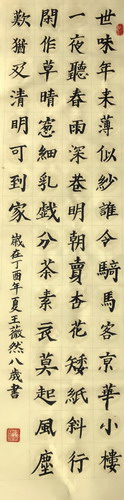 世味年来薄似紗誰令騎馬客京華小樓
一夜聽春雨深巷明朝賣杏花矮紙斜行
閑作草晴窻細乳戲分茶素衣莫起風塵
歎猶及清明可到家
歲在丁酉年夏王薇然八歲書